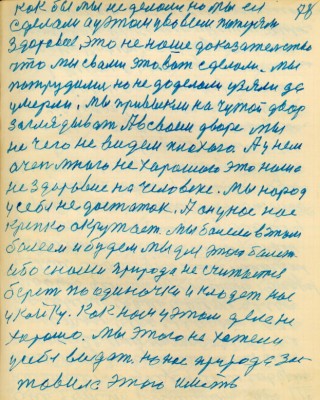 78
как бы мы не делали но мы ей
сделали а у этом увовсем потеряли
здоровье, это не наше доказательство
что мы с вами это вот сделали. Мы
потрудились но не доделали узяли да
умерли. Мы привыкли на чужой двор
заглядывать. А в своем дворе мы
не чего не видем плохого. А у нем
очен много не хорошого это наше
не здоровие на человеке. Мы народ
у себя не достаток. А он у нас нас
крепко окружает. Мы болеем в этом
болеем и будем мы для этого болет.
ибо с нами природа не считается
берет по одиночки и кладет нас
у койку. Как нам у этом деле не
хорошо. Мы этого не хотели
у себя видать. но нас природа зас
тавила этого иметь